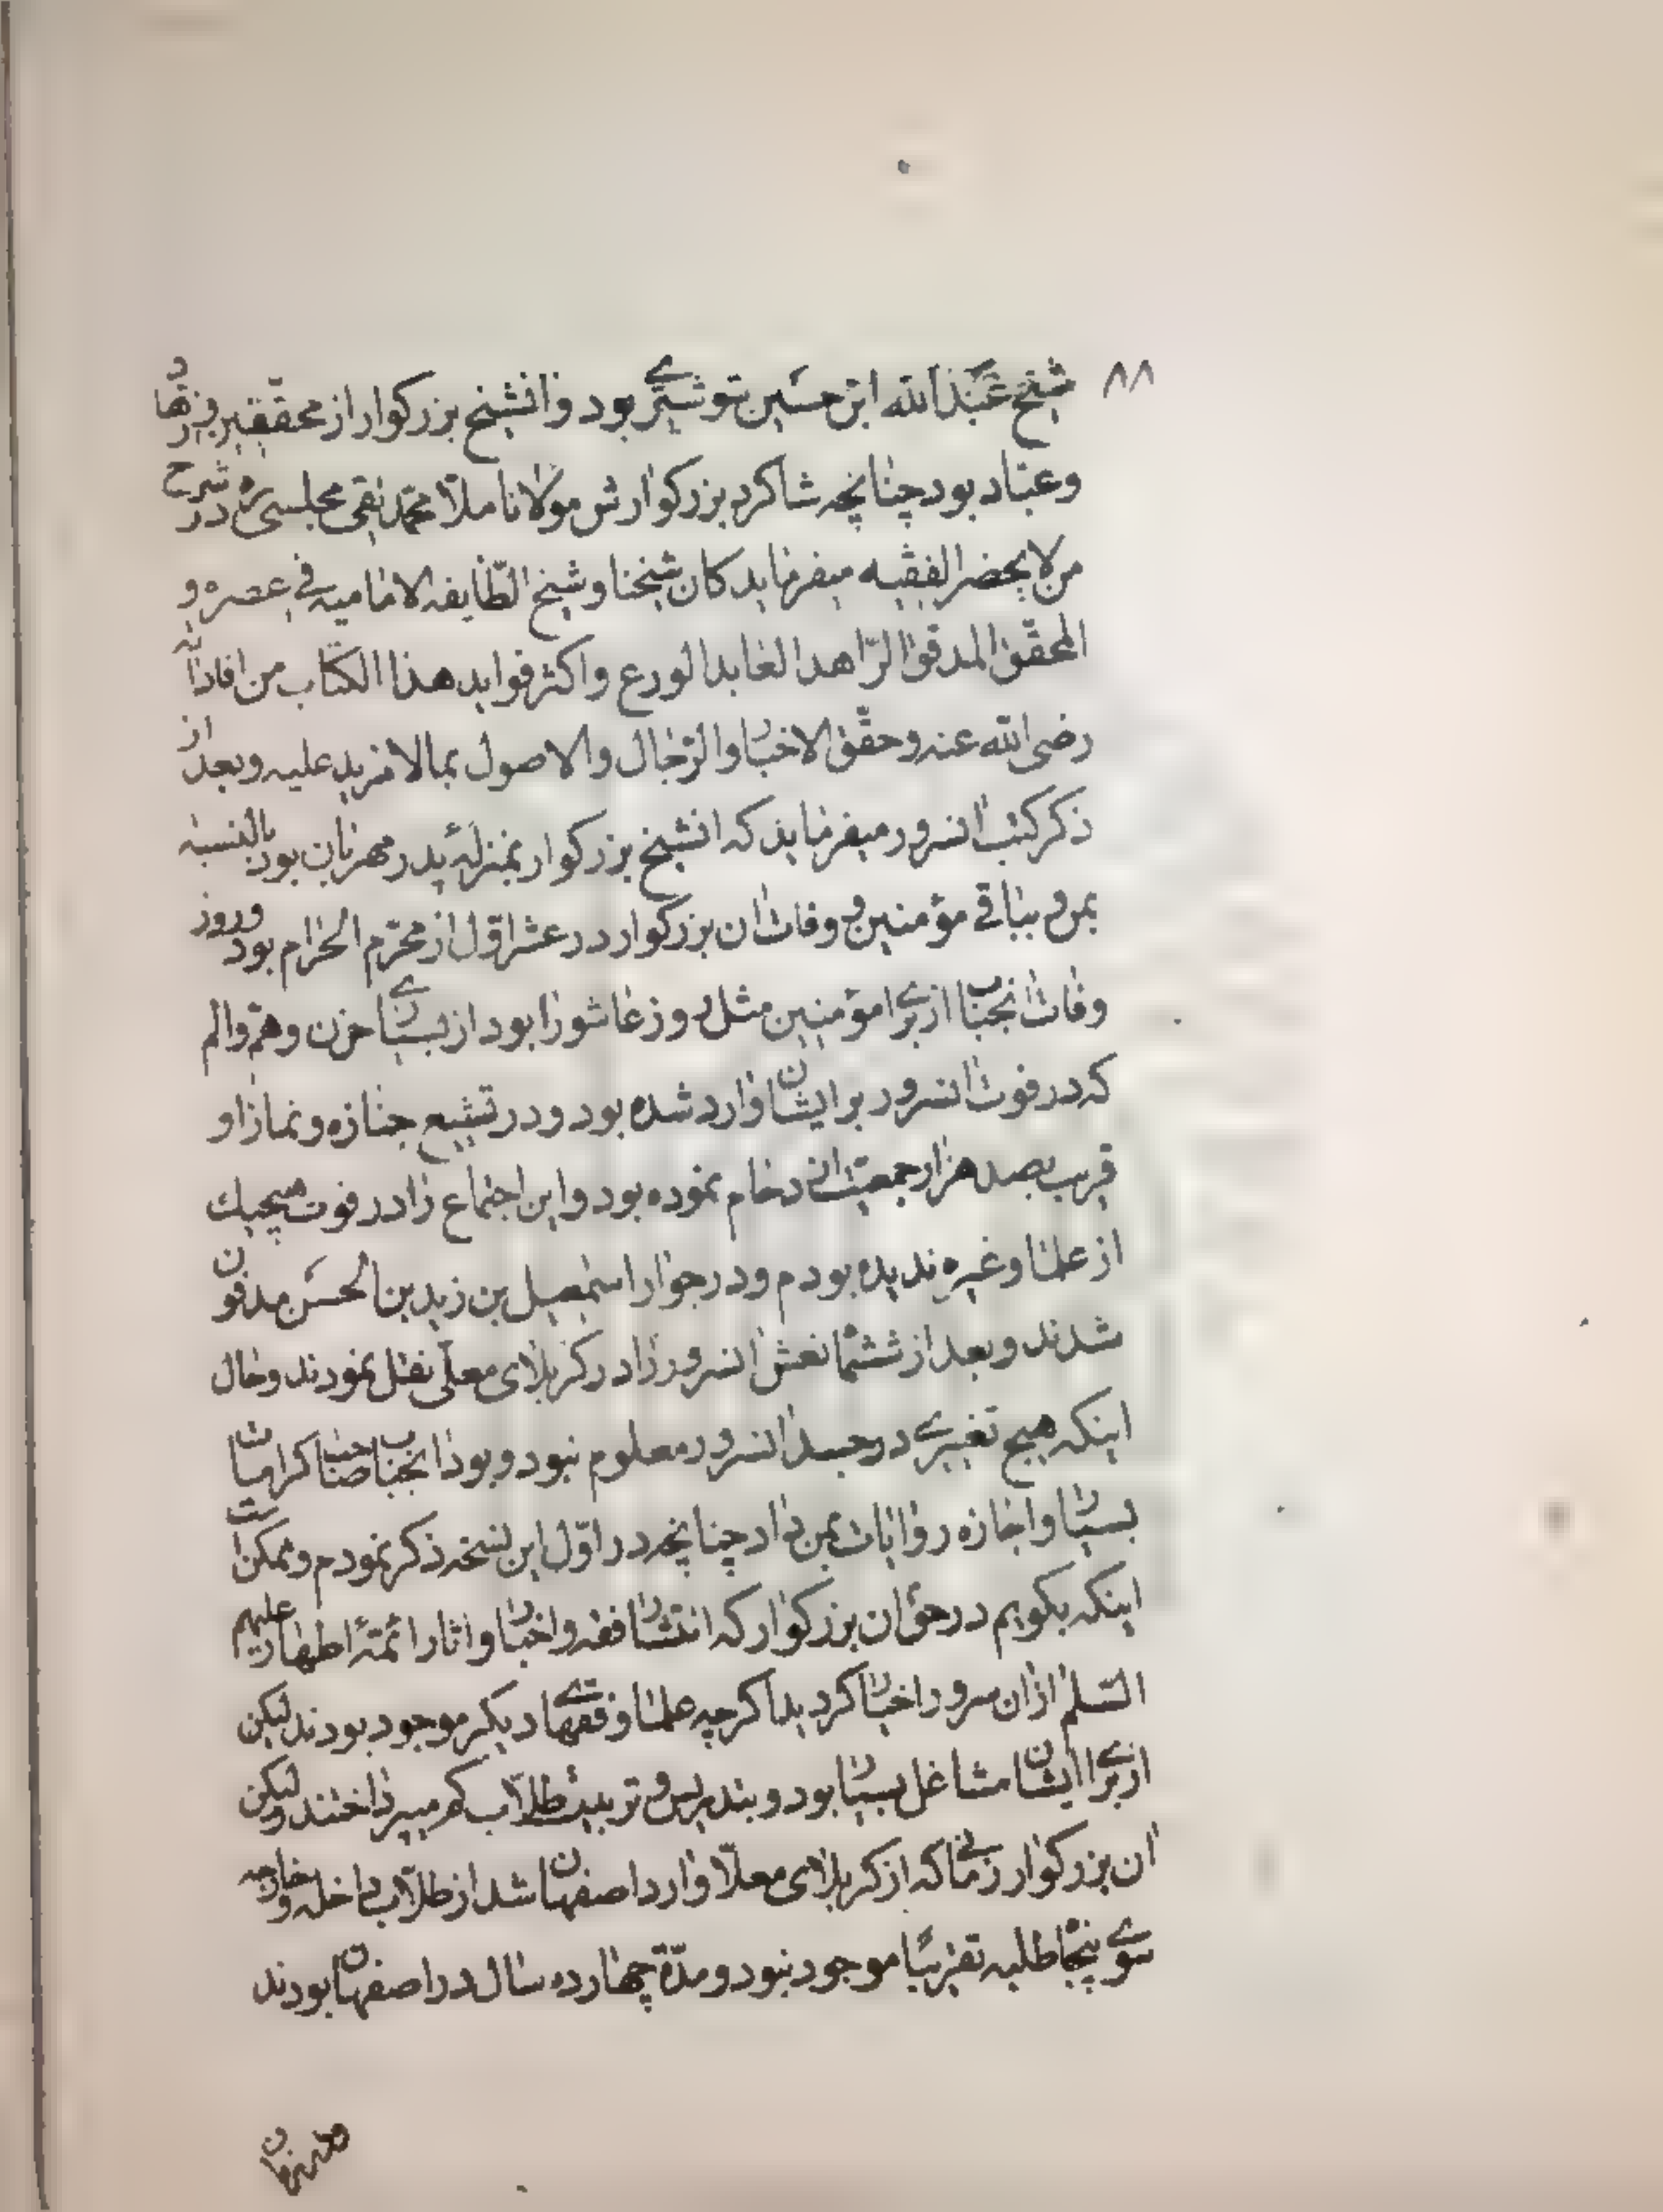 ۸۸
شیخ عبدالله ابن حسین توشتری بود و انشیخ بزرکوار از محققین و زهاد
و عباد بود چنانچه شاکرد بزرکوارش مولانا ملا محمد تقی مجلسی ره در شرح
من لا یحضر الفقیه میفرماید کان شیخنا و شیخ الطایفه الامامیه فی عصره و
المحقق المدقق الزاهد العابد الورع و اکثر فواید هذا الکتاب من افاداته
رضی الله عنه و حقق الاخبار و الرجال و الاصول بما لا مزید علیه و بعد از
ذکر کتب انسرور میفرماید که انشیخ بزرکوار بمنزلهٔ پدر مهربان بود بالنسبه
بمن و بباقی مؤمنین و وفات ان بزرکوار در عشر اول از محرم الحرام بود و روز
وفات انجناب از برای مؤمنین مثل روز عاشورا بود از بسیاری حزن و هم و الم
که در فوت انسرور بر ایشان وارد شده بود و در تشییع جنازه و نماز او
قریب بصد هزار جمعیت ازدحام نموده بود و این اجتماع را در فوت هیچیك
از علما و غیره ندیده بودم و در جوار اسمعیل بن زید بن الحسن مدفون
شدند و بعد از ششماه نعش انسرور را در کربلای معلی نقل نمودند و حال
اینکه هیچ تغییری در جسد انسرور معلوم نبود و بود انجناب صاحب کرامات
بسیار و اجازه روایات بمن داد چنانچه در اول این نسخه ذکر نمودم و ممکن است
اینکه بکویم در حق ان بزرکوار که انتشار فقه و اخبار و اثار ائمهٔ اطهار علیهم
السلم از ان سرور اخبار کردید اکرچه علما و فقهای دیکر موجود بودند لیکن
از برای ایشان مشاغل بسیار بود و بتدریس و تربیت طلاب کم میپرداختند و لیکن
ان بزرکوار زمانی که از کربلای معلا وارد اصفهان شد از طلاب داخله و خارجه
سوی پنجاه طلبه تقریبًا موجود نبود و مدّة چهارده سال در اصفهان بودند